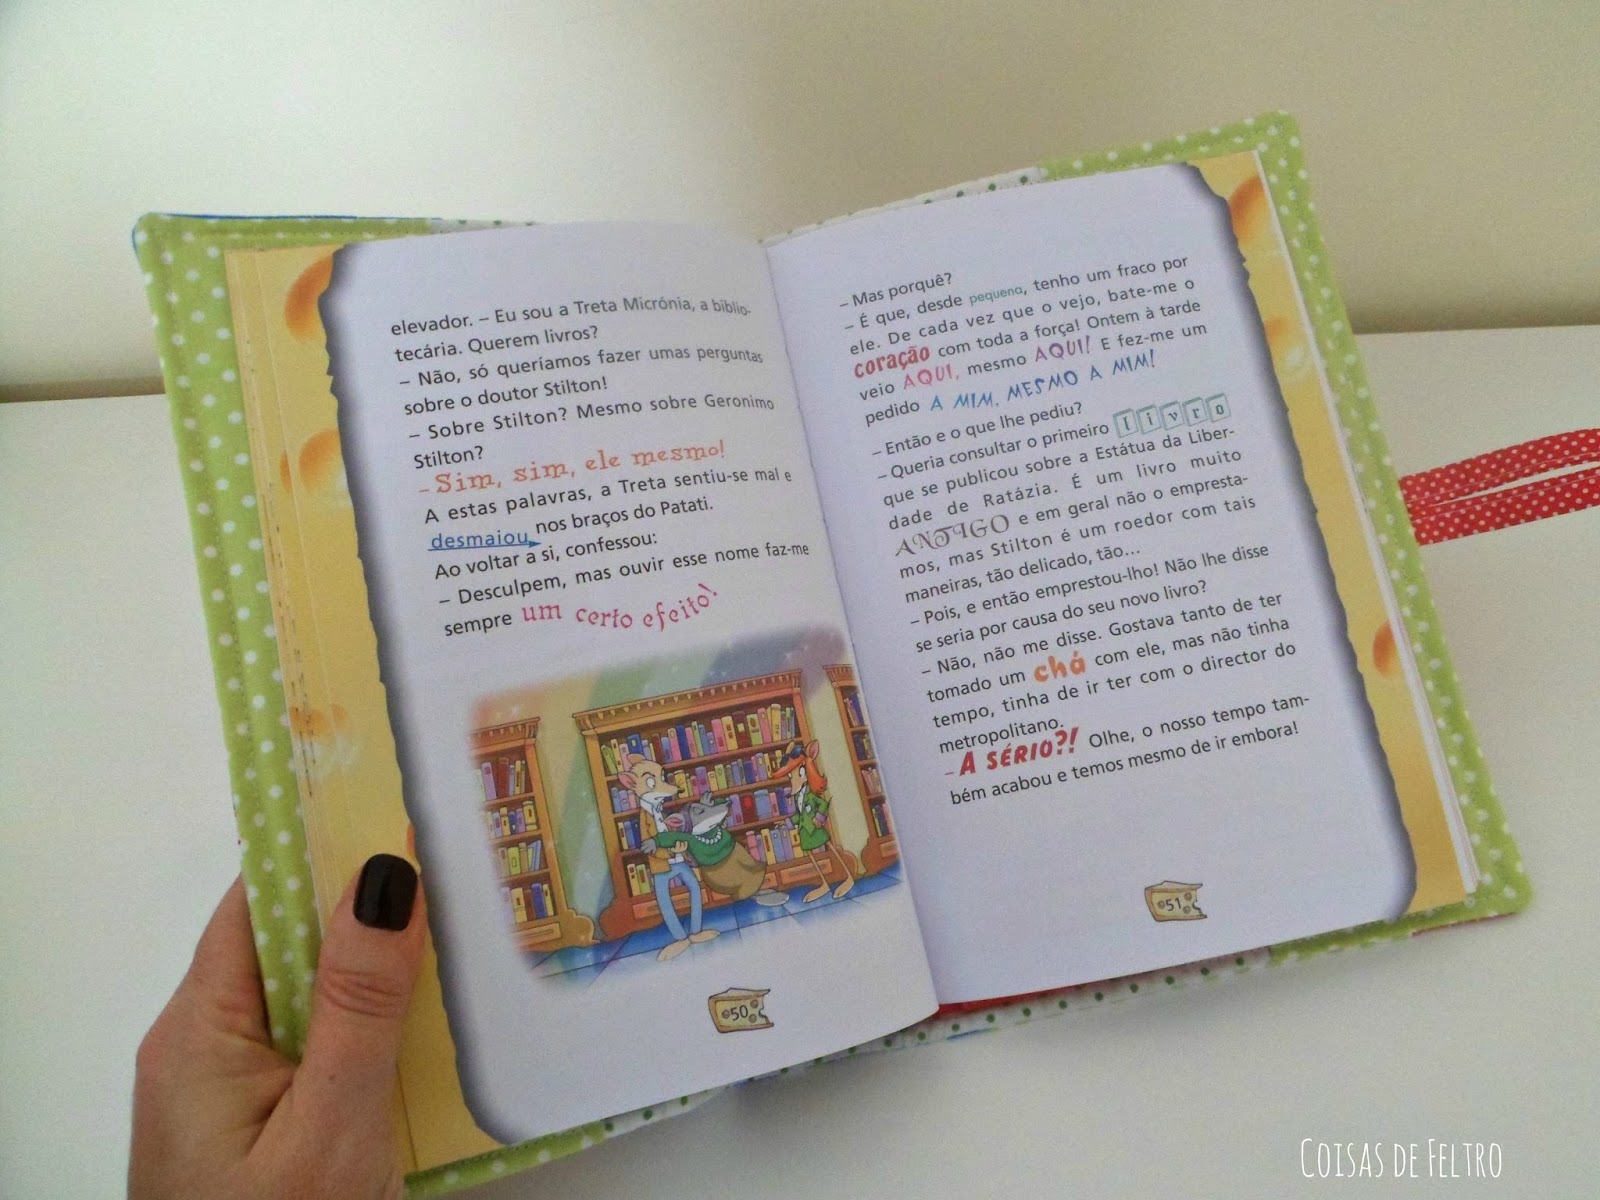 elevador. – Eu sou a Treta Micrónia, a biblio-
tecária. Querem livros?
– Não, só queríamos fazer umas perguntas
sobre o doutor Stilton!
– Sobre Stilton? Mesmo sobre Geronimo
Stilton?
– Sim, sim, ele mesmo!
A estas palavras, a Treta sentiu-se mal e
desmaiou nos braços do Patati.
Ao voltar a si, confessou:
– Desculpem, mas ouvir esse nome faz-me
sempre um certo efeito!
50
– Mas porquê?
– É que, desde pequena, tenho um fraco por
ele. De cada vez que o vejo, bate-me o
coração com toda a força! Ontem à tarde
veio AQUI, mesmo AQUI! E fez-me um
pedido A MIM, MESMO A MIM!
– Então e o que lhe pediu?
– Queria consultar o primeiro livro
que se publicou sobre a Estátua da Liber-
dade de Ratázia. É um livro muito
ANTIGO e em geral não o empresta-
mos, mas Stilton é um roedor com tais
maneiras, tão delicado, tão...
– Pois, e então emprestou-lho! Não lhe disse
se seria por causa do seu novo livro?
– Não, não me disse. Gostava tanto de ter
tomado um chá com ele, mas não tinha
tempo, tinha de ir ter com o director do
metropolitano.
– A SÉRIO?! Olhe, o nosso tempo tam-
bém acabou e temos mesmo de ir embora!
51
COISAS DE FELTRO